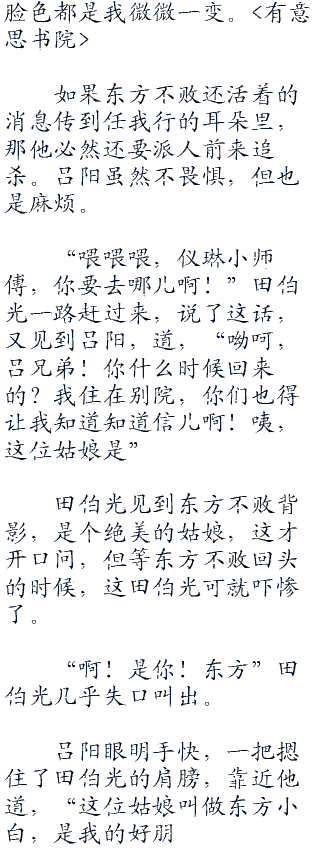 脸色都是我微微一变。<有意
思书院>
如果东方不败还活着的
消息传到任我行的耳朵里，
那他必然还要派人前来追
杀。吕阳虽然不畏惧，但也
是麻烦。
“喂喂喂，仪琳小师
傅，你要去哪儿啊！”田伯
光一路赶过来，说了这话，
又见到吕阳，道，“呦呵，
吕兄弟！你什么时候回来
的？我住在别院，你们也得
让我知道知道信儿啊！咦，
这位姑娘是”
田伯光见到东方不败背
影，是个绝美的姑娘，这才
开口问，但等东方不败回头
的时候，这田伯光可就吓惨
了。
“啊！是你！东方”田
伯光几乎失口叫出。
吕阳眼明手快，一把摁
住了田伯光的肩膀，靠近他
道，“这位姑娘叫做东方小
白，是我的好朋